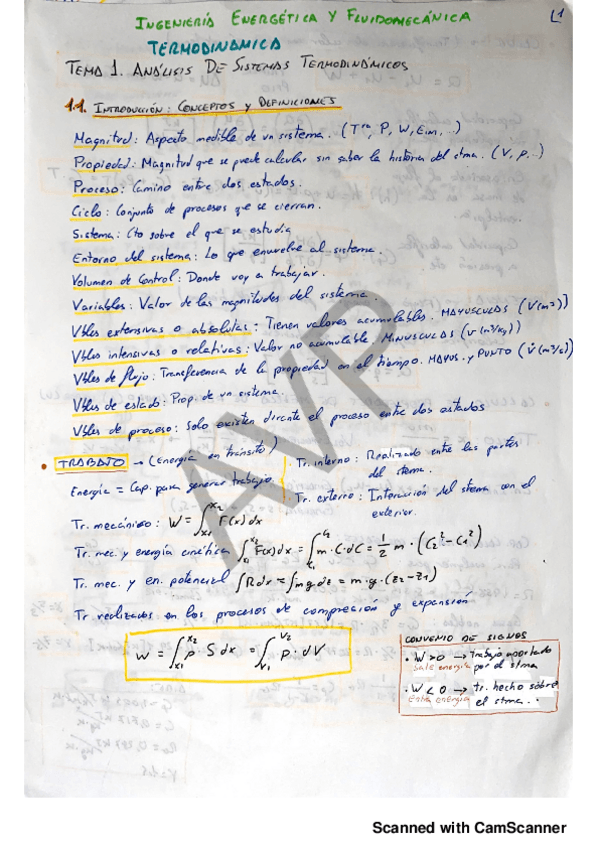 INGENIERÍA ENERGÉTICA Y FLUIDOMECÁNICA
L1
TERMODINAMICA
TEMA 1. ANÁLISIS DE SISTEMAS TERMODINÁMICOS
1.1. INTRODUCCIÓN: CONCEPTOS Y DEFINICIONES
Magnitud: Aspecto medible de un sistema. (Tra, P, W, Ecin, ..)
Propiedad: Magnitud que se puede calcular sin saber la historia del stma. (V, ρ..)
Proceso: Camino entre dos estados.
Ciclo: Conjunto de procesos que se cierran.
Sistema: Cto sobre el que se estudia
Entorno del sistema: Lo que envuelve al sistema.
Volumen de Control: Donde voy a trabajar.
Variables: Valor de las magnitudes del sistema.
Vbles extensivas o absolutas: Tienen valores acumulables. MAYUSCULAS (V(m³))
Vbles intensivas o relativas: Valor no acumulable. MINUSCULAS (v (m³/kg))
Vbles de flujo: Transferencia de la propiedad en el tiempo. MAYUS. y PUNTO (V̇ (m³/s))
Vbles de estado: Prop. de un sistema.
Vbles de proceso: Solo existen durante el proceso entre dos estados
• TRABAJO → (Energía en tránsito)
Energía = Cap. para generar trabajo.
Tr. interno: Realizado entre las partes
del stema.
Tr. externo: Interacción del stema con el
exterior.
Tr. mecánico: W = ∫x1x2 F(x) dx
Tr. mec. y energía cinética ∫x1x2 F(x) dx = ∫c1c2 m·C·dC = 1/2 m·(C2² - C1²)
Tr. mec. y en. potencial ∫R dz = ∫mg dz = m·g·(z2 - z1)
Tr. realizados en los procesos de compresión y expansión
W = ∫x1x2 p·S dx = ∫V1V2 p·dV
CONVENIO DE SIGNOS
• W > 0 → Trabajo aportado
Sale energía por el stma
• W < 0 → tr. hecho sobre
entra energía el stma..
AVP
Scanned with CamScanner